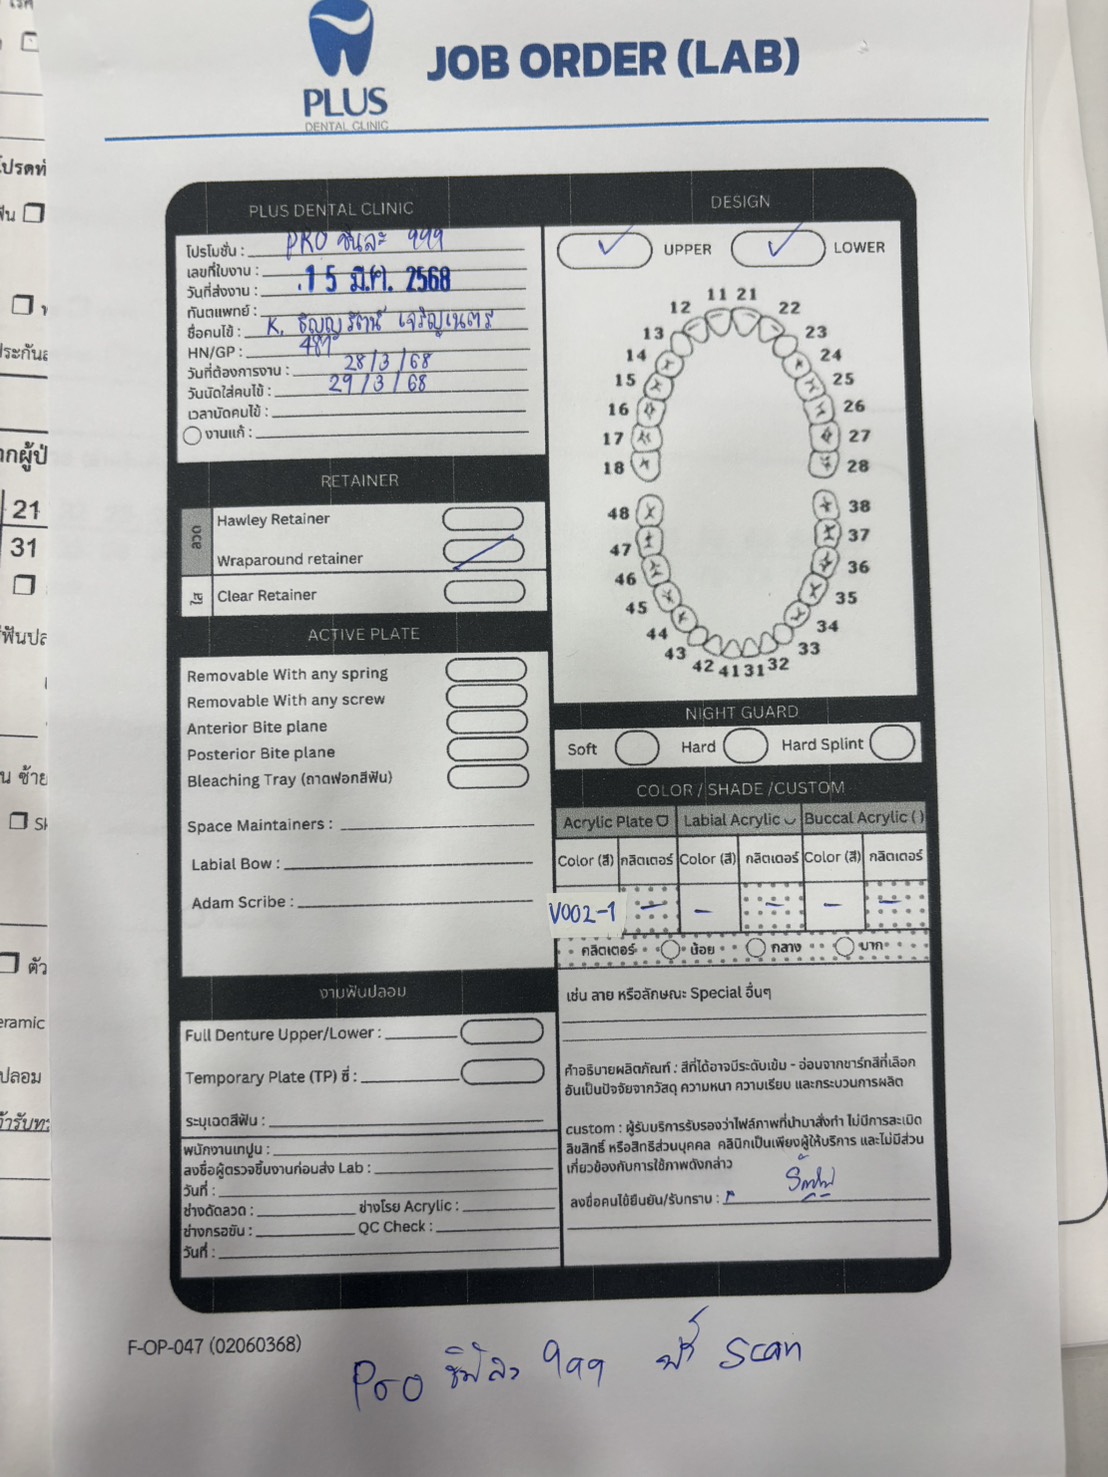 PLUS
DENTAL CLINIC
JOB ORDER (LAB)
PLUS DENTAL CLINIC
โปรโมชั่น : PRO ชิ้นละ 999
เลขที่ใบงาน :
วันที่ส่งงาน : 15 มี.ค. 2568
ทันตแพทย์ :
ชื่อคนไข้ : K. ธัญญรัตน์ เจริญเนตร
HN/GP : 487
วันที่ต้องการงาน : 28/3/68
วันนัดใส่คนไข้ : 29/3/68
เวลานัดคนไข้ :
งานแก้ :
RETAINER
ลวด
Hawley Retainer
Wraparound retainer
ใส
Clear Retainer
ACTIVE PLATE
Removable With any spring
Removable With any screw
Anterior Bite plane
Posterior Bite plane
Bleaching Tray (ถาดฟอกสีฟัน)
Space Maintainers :
Labial Bow :
Adam Scribe :
งานฟันปลอม
Full Denture Upper/Lower :
Temporary Plate (TP) ซี่ :
ระบุเฉดสีฟัน :
พนักงานเทปูน :
ลงชื่อผู้ตรวจชิ้นงานก่อนส่ง Lab :
วันที่ :
ช่างดัดลวด : ช่างโรย Acrylic :
ช่างกรอขัน : QC Check :
วันที่ :
DESIGN
UPPER LOWER
11 21
12 22
13 23
14 24
15 25
16 26
17 27
18 28
48 38
47 37
46 36
45 35
44 34
43 33
42 41 31 32
NIGHT GUARD
Soft Hard Hard Splint
COLOR / SHADE /CUSTOM
Acrylic Plate Labial Acrylic Buccal Acrylic ( )
Color (สี) กลิตเตอร์ Color (สี) กลิตเตอร์ Color (สี) กลิตเตอร์
V002-1 - - - - -
กลิตเตอร์ น้อย กลาง มาก
เช่น ลาย หรือลักษณะ Special อื่นๆ
คำอธิบายผลิตภัณฑ์ : สีที่ได้อาจมีระดับเข้ม - อ่อนจากชาร์ทสีที่เลือก
อันเป็นปัจจัยจากวัสดุ ความหนา ความเรียบ และกระบวนการผลิต
custom : ผู้รับบริการรับรองว่าไฟล์ภาพที่นำมาสั่งทำ ไม่มีการละเมิด
ลิขสิทธิ์ หรือสิทธิส่วนบุคคล คลินิกเป็นเพียงผู้ให้บริการ และไม่มีส่วน
เกี่ยวข้องกับการใช้ภาพดังกล่าว
ลงชื่อคนไข้ยืนยัน/รับทราบ :
F-OP-047 (02060368)
Pro ชิ้นละ 999 ฟรี scan
21
31